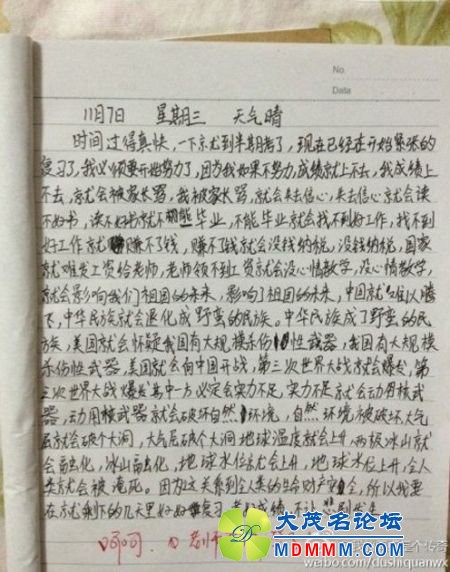 No.
Data
11月7日 星期三 天气晴
时间过得真快,一下就到半期考了,现在已经在开始紧张的
复习了,我必须要开始努力了,因为我如果不努力,成绩就上不去,我成绩上
不去,就会被家长骂,我被家长骂,就会失去信心,失去信心就会读
不好书,读不好书就不能毕业,不能毕业就会找不到好工作,找不到
好工作就赚不了钱,赚不了钱就会没钱纳税,没钱纳税,国家
就难发工资给老师,老师领不到工资就会没心情教学,没心情教学,
就会影响我们祖国的未来,影响了祖国的未来,中国就难以腾
飞,中华民族就会退化成野蛮的民族。中华民族成了野蛮的民
族,美国就会怀疑我国有大规模杀伤性武器,我国有大规模
杀伤性武器,美国就会向中国开战,第三次世界大战就会爆发,第
三次世界大战爆发其中一方必定会实力不足,实力不足就会动用核武
器,动用核武器就会破坏自然环境,自然环境被破坏,大气
层就会破个大洞,大气层破个大洞地球温度就会上升,两极冰山就
会融化,冰山融化,地球水位就会上升,地球水位上升,全人
类就会被淹死。因为这关系到全人类的生命财产安全,所以我要
在就剩下的几天里好好复习,成绩,不让悲剧发生
呵呵,
大茂名论坛
MDMMM.COM
个传奇
weibo.com/dushiquanwx